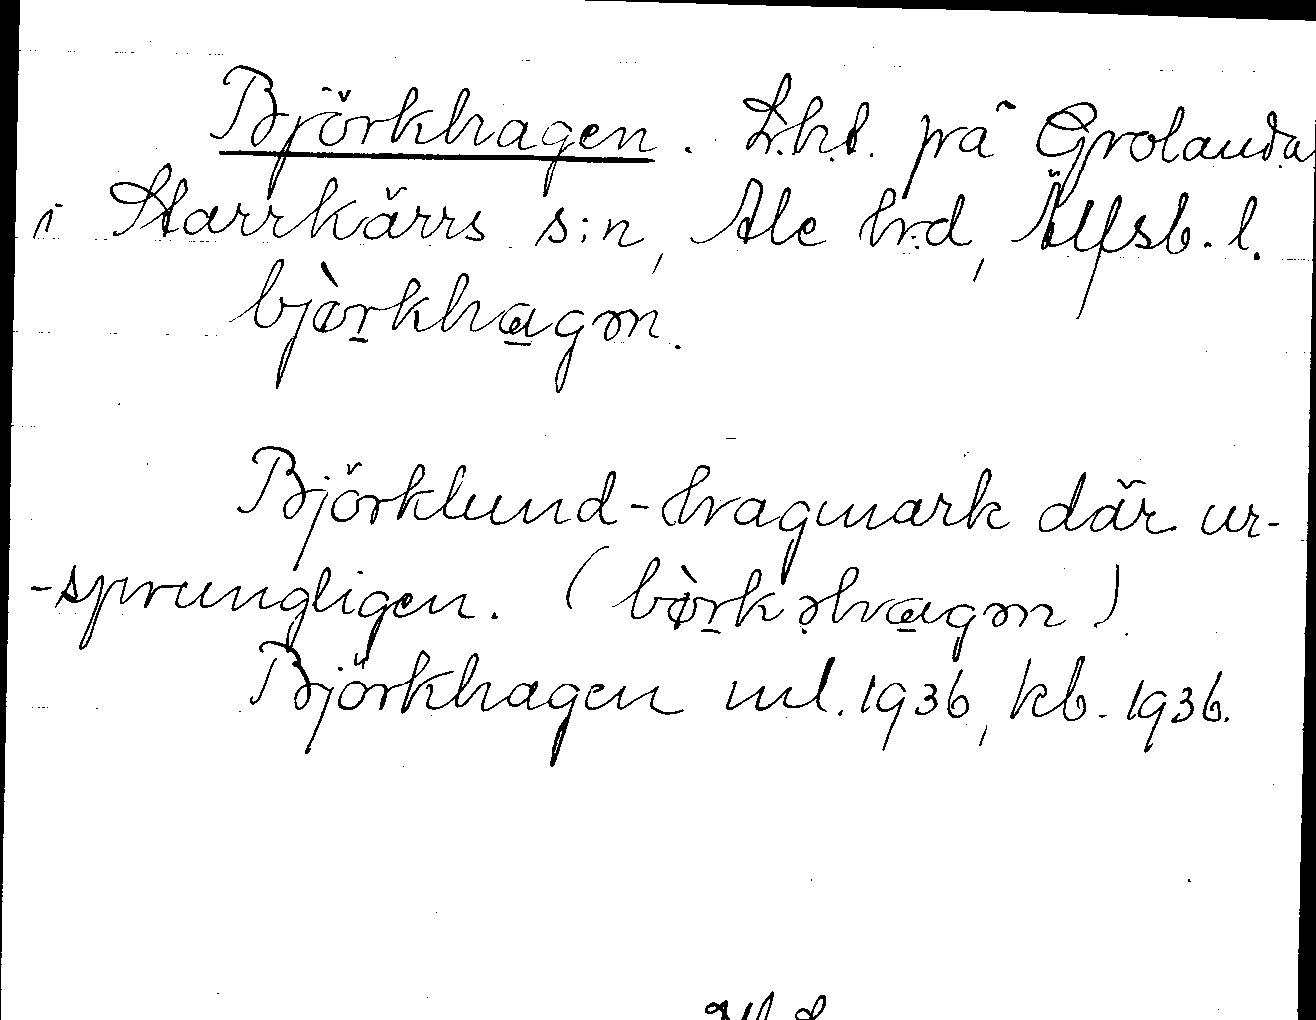 Björkhagen. L.h.t. på Grolanda
i Starrkärrs s:n, Ale hrd, Älfsb. l.
bjø̀rkhagən.
Björklund-hagmark där ur-
-sprungligen. (bø̀rkəhagən)
Björkhagen ml. 1936, kb. 1936.